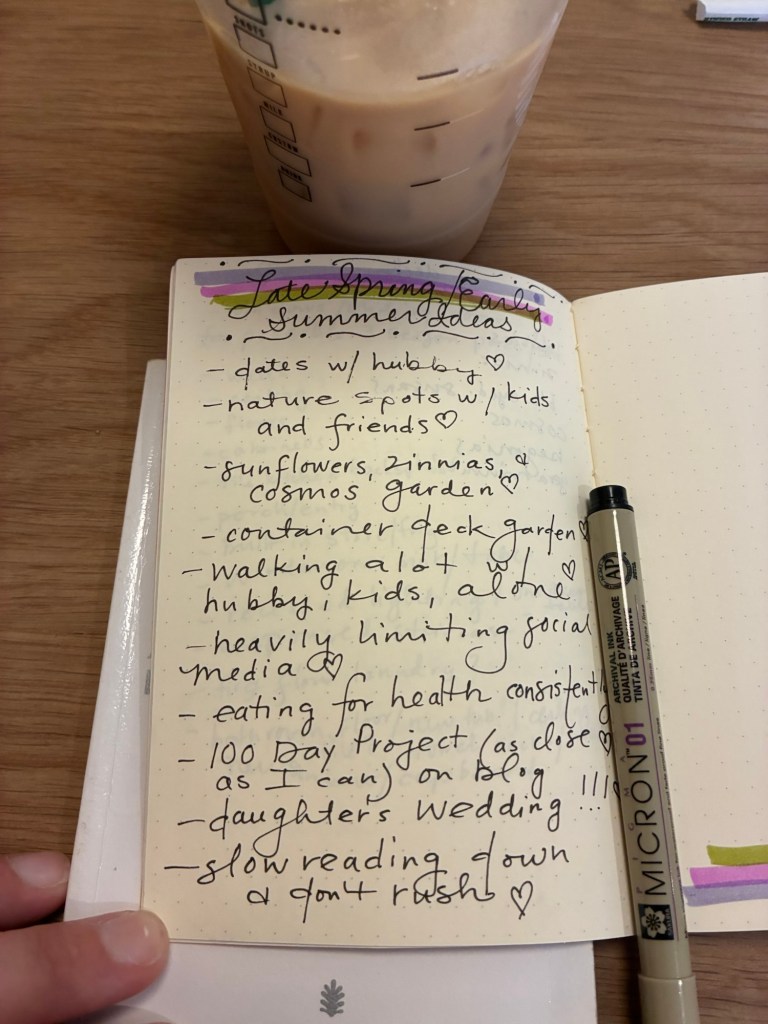 SHOTS
SYRUP
MILK
CUSTOM
DRINK
Late Spring/Early
Summer Ideas
- dates w/ hubby ♡
- nature spots w/ kids
and friends ♡
- sunflowers, zinnias, &
cosmos garden ♡
- container deck garden ♡
- walking alot w/ ♡
hubby, kids, alone
- heavily limiting social
media ♡
- eating for health consistently
- 100 Day Project (as close ♡
as I can) on blog
- daughter's wedding !!!
- slow reading down
& don't rush ♡
AP
ARCHIVAL INK
QUALITÉ D'ARCHIVAGE
TINTA DE ARCHIVE
PIGMA
MICRON 01